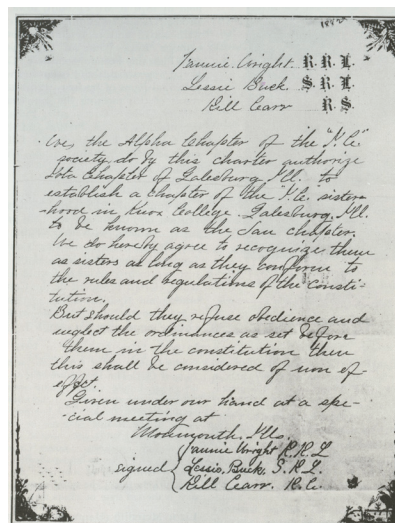 1882
Fannie Wright R.R.L.
Lessie Buck S.R.L.
Kill Cearr R.S.
We, the Alpha Chapter of the "I.C."
society do by this charter authorize
Iota Chapter of Galesburg Ill. to
establish a chapter of the "I.C." sister-
-hood in Knox College. Galesburg, Ill.
to be known as the Tau chapter.
We do hereby agree to recognize them
as sisters as long as they conform to
the rules and regulations of the consti-
tution.
But should they refuse obedience and
neglect the ordinances as set before
them in the constitution then
this shall be considered of non ef-
effect.
Given under our hand at a spe-
-cial meeting at
Monmouth, Ills.
Fannie Wright R.R.L
signed Lessie Buck. S.R.L.
Kill Cearr. R.C.